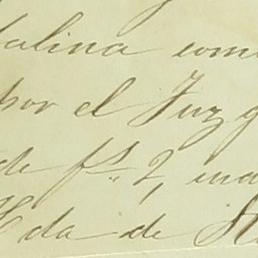 alina com
por el Juzg
de fs. 2, ma
da de